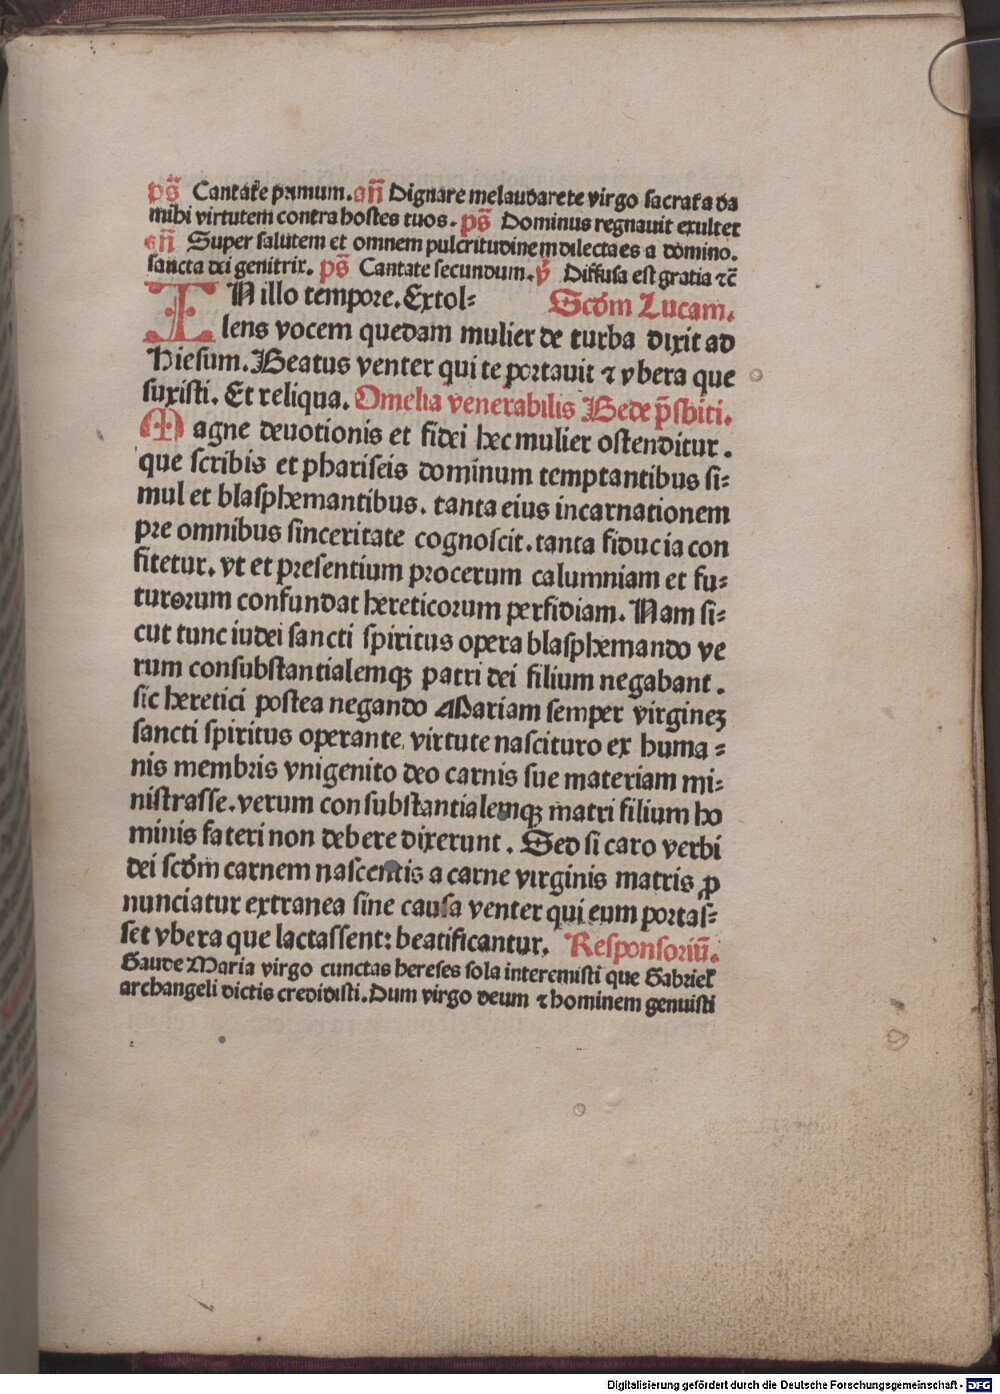 ps̄ Cantate primum. an̄ Dignare me laudare te virgo sacrata da
mihi virtutem contra hostes tuos. ps̄ Dominus regnauit exultet
an̄ Super salutem et omnem pulcritudinem dilecta es a domino.
sancta dei genitrix. ps̄ Cantate secundum. v̄ Diffusa est gratia ⁊c̄
IN illo tempore. Extol⸗ Scd̄m Lucam.
lens vocem quedam mulier de turba dixit ad
Hiesum. Beatus venter qui te portauit ⁊ vbera que
suxisti. Et reliqua. Omelia venerabilis Bede p̄sbiti.
Magne deuotionis et fidei hec mulier ostenditur.
que scribis et phariseis dominum temptantibus si⸗
mul et blasphemantibus. tanta eius incarnationem
pre omnibus sinceritate cognoscit. tanta fiducia con
fitetur. vt et presentium procerum calumniam et fu⸗
turorum confundat hereticorum perfidiam. Nam si⸗
cut tunc iudei sancti spiritus opera blasphemando ve
rum consubstantialemqꝫ patri dei filium negabant.
sic heretici postea negando Mariam semper virgineꝫ
sancti spiritus operante virtute nascituro ex huma⸗
nis membris vnigenito deo carnis sue materiam mi⸗
nistrasse. verum consubstantialemqꝫ matri filium ho
minis fateri non debere dixerunt. Sed si caro verbi
dei scd̄m carnem nascentis a carne virginis matris ꝓ
nunciatur extranea sine causa venter qui eum portas⸗
set vbera que lactassent: beatificantur. Responsoriū.
Gaude Maria virgo cunctas hereses sola interemisti que Gabriel
archangeli dictis credidisti. Dum virgo deum ⁊ hominem genuisti
Digitalisierung gefördert durch die Deutsche Forschungsgemeinschaft - DFG